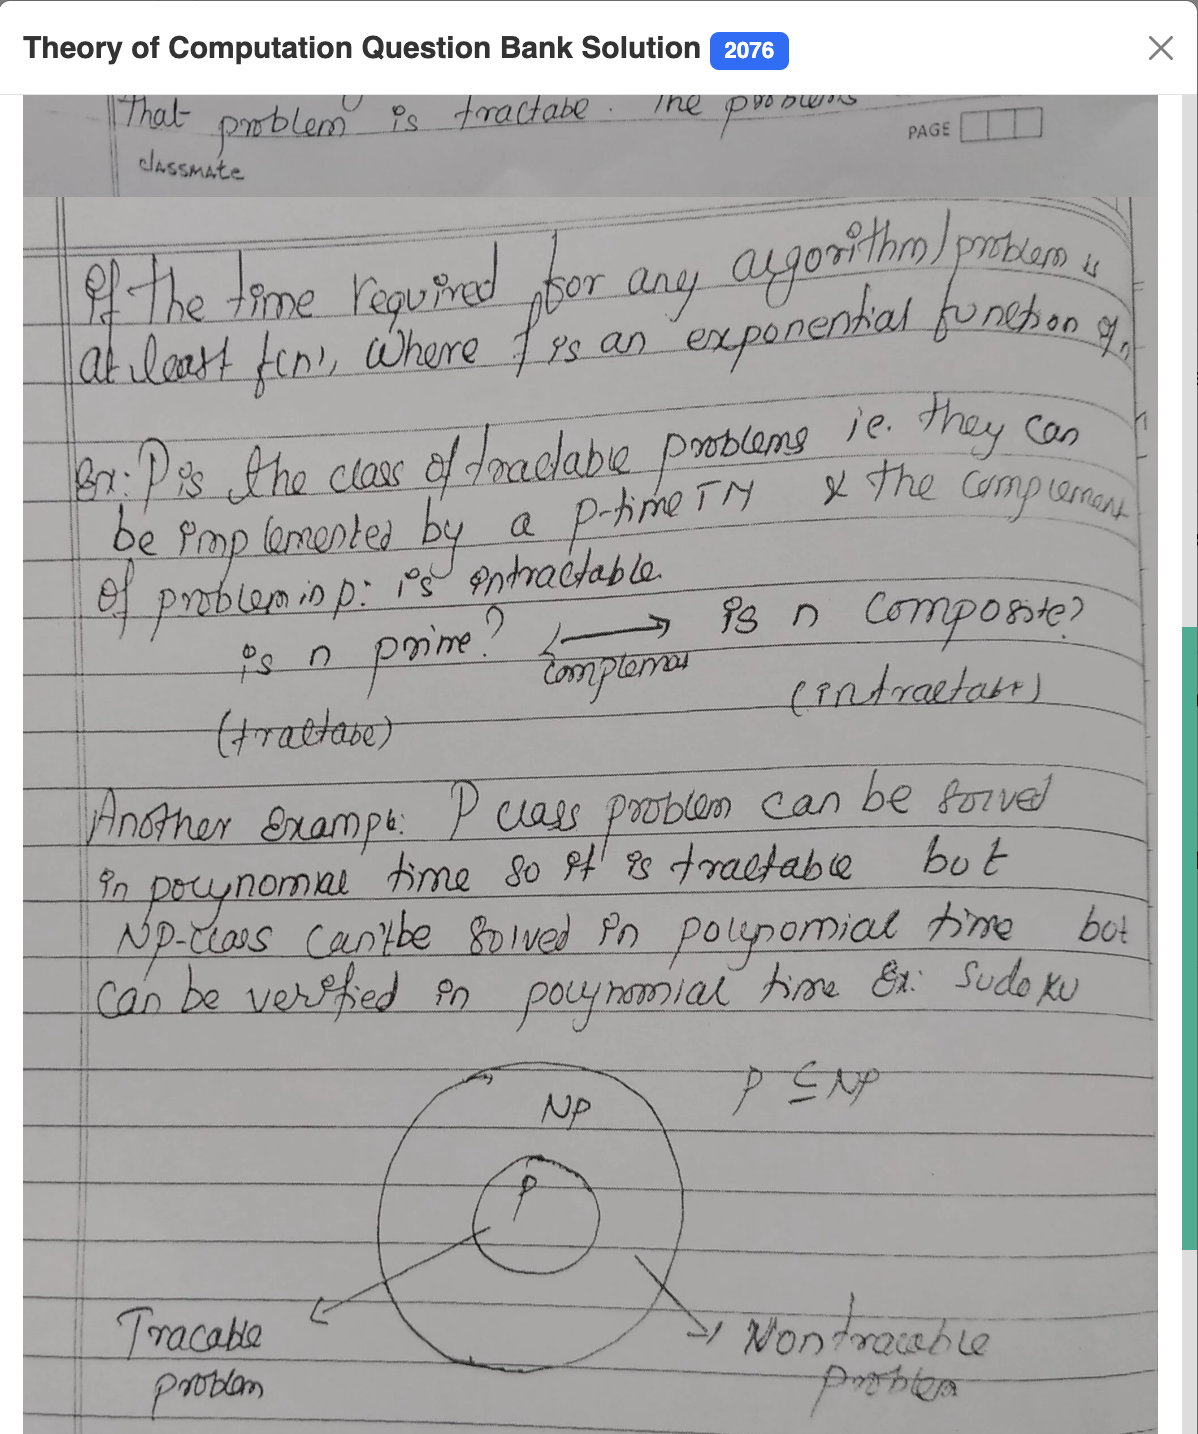 Theory of Computation Question Bank Solution 2076
That problem is tractabe. The problems
PAGE
classmate
If the time required for any algorithm/problem is
at least f(n), where f is an exponential function of n
Ex: P is the class of tractable problems ie. they can
be implemented by a p-time TM & the complement
of problem in p: is intractable.
is n prime? ⟷ is n composite?
complement
(intractabe)
(tractabe)
Another Example: P class problem can be solved
in polynomial time so it is tractable but
NP-class can't be solved in polynomial time but
can be verified in polynomial time Ex: Sudoku
NP
P ⊆ NP
P
Tracable
problem
Nontracable
problem